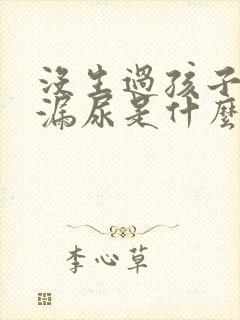 没生過孩子
漏尿是什麼
李心草